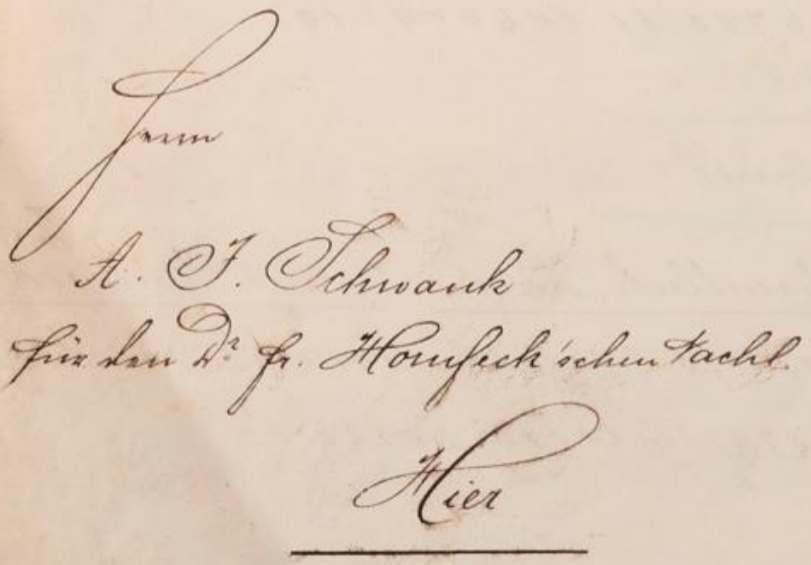 Herrn
A. J. Schwank
für den Dr. Fr. Hornfeck'schen Nachl.
Hier